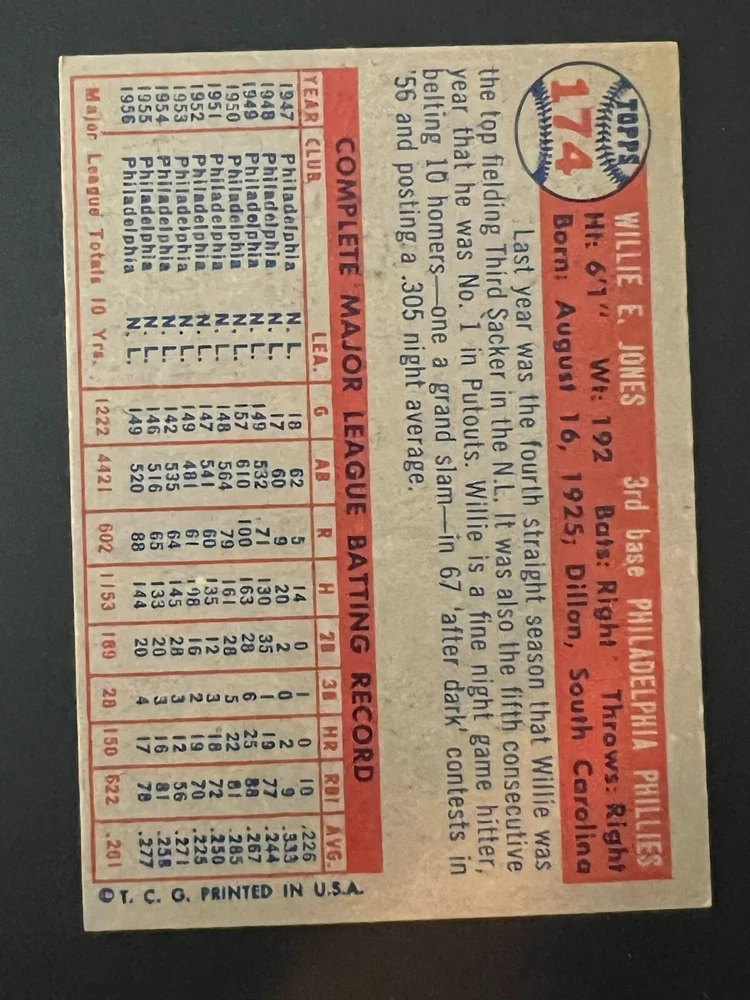 TOPPS
174
WILLIE E. JONES 3rd base PHILADELPHIA PHILLIES
Ht: 6'1" Wt: 192 Bats: Right Throws: Right
Born: August 16, 1925; Dillon, South Carolina
Last year was the fourth straight season that Willie was
the top fielding Third Sacker in the N.L. It was also the fifth consecutive
year that he was No. 1 in Putouts. Willie is a fine night game hitter,
belting 10 homers—one a grand slam—in 67 'after dark' contests in
'56 and posting a .305 night average.
COMPLETE MAJOR LEAGUE BATTING RECORD
YEAR CLUB LEA. G AB R H 2B 3B HR RBI AVG.
1947 Philadelphia N. L. 18 62 5 14 0 1 0 10 .226
1948 Philadelphia N. L. 17 60 9 20 2 0 2 9 .333
1949 Philadelphia N. L. 149 532 71 130 35 1 19 77 .244
1950 Philadelphia N. L. 157 610 100 163 28 6 25 88 .267
1951 Philadelphia N. L. 148 564 79 161 28 5 22 81 .285
1952 Philadelphia N. L. 147 541 60 135 12 3 18 72 .250
1953 Philadelphia N. L. 149 481 61 108 16 2 19 70 .225
1954 Philadelphia N. L. 142 535 64 145 28 3 12 56 .271
1955 Philadelphia N. L. 146 516 65 133 20 3 16 81 .258
1956 Philadelphia N. L. 149 520 88 144 20 4 17 78 .277
Major League Totals 10 Yrs. 1222 4421 602 1153 189 28 150 622 .261
© T. C. G. PRINTED IN U.S.A.